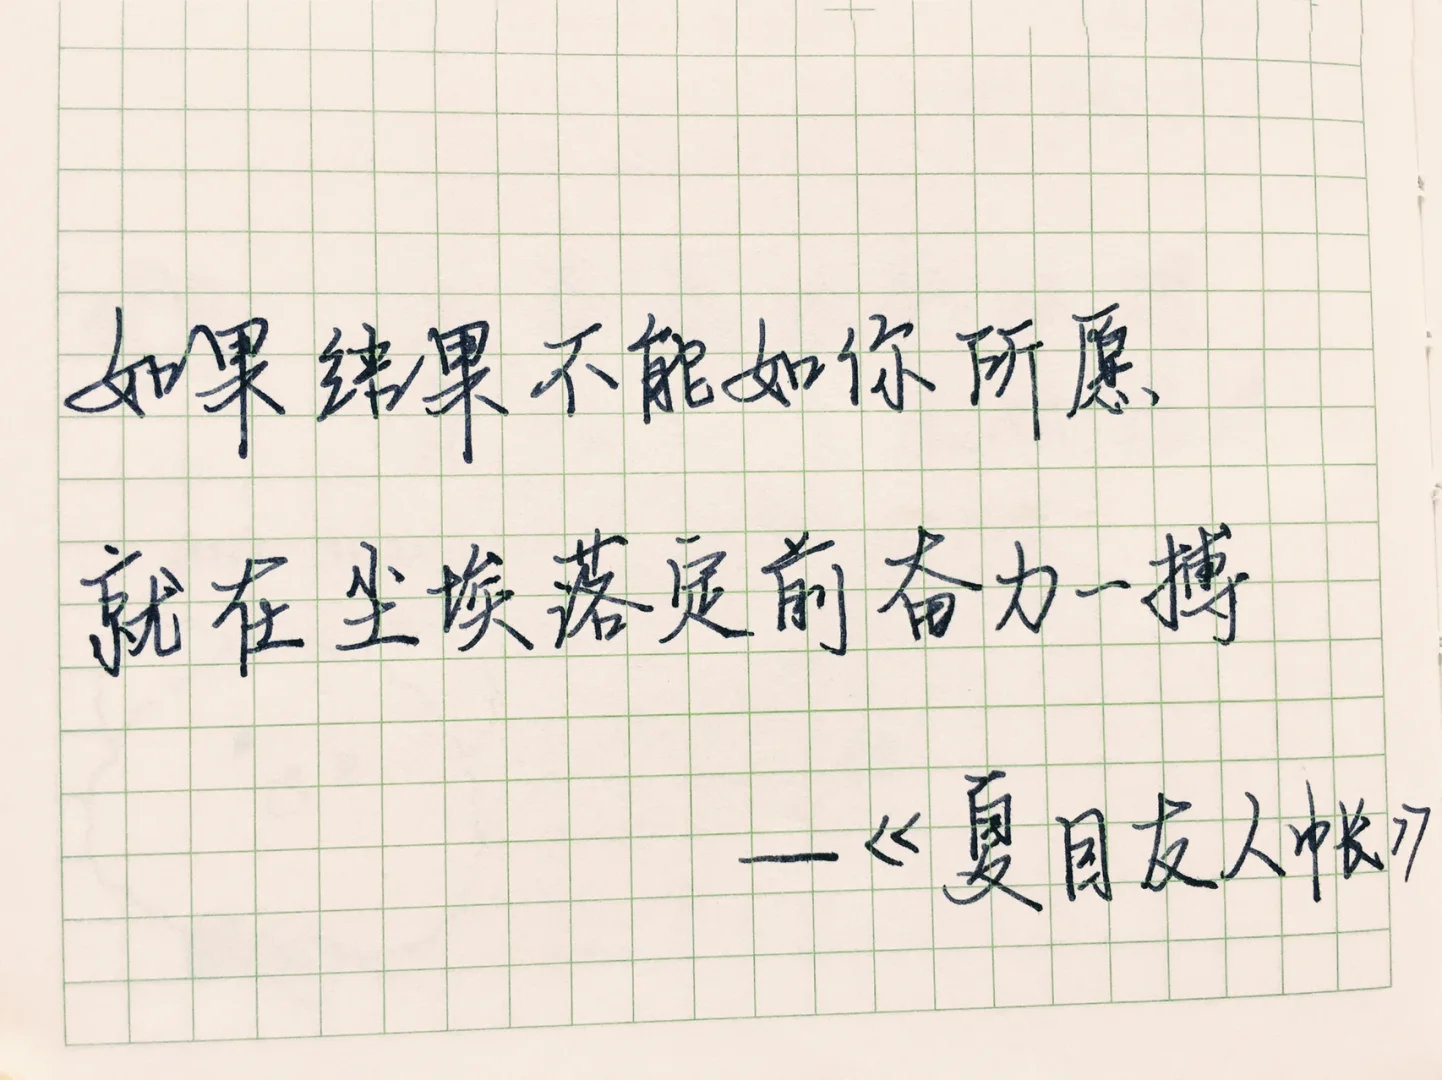 如果结果不能如你所愿
就在尘埃落定前奋力一搏
—《夏目友人帐》